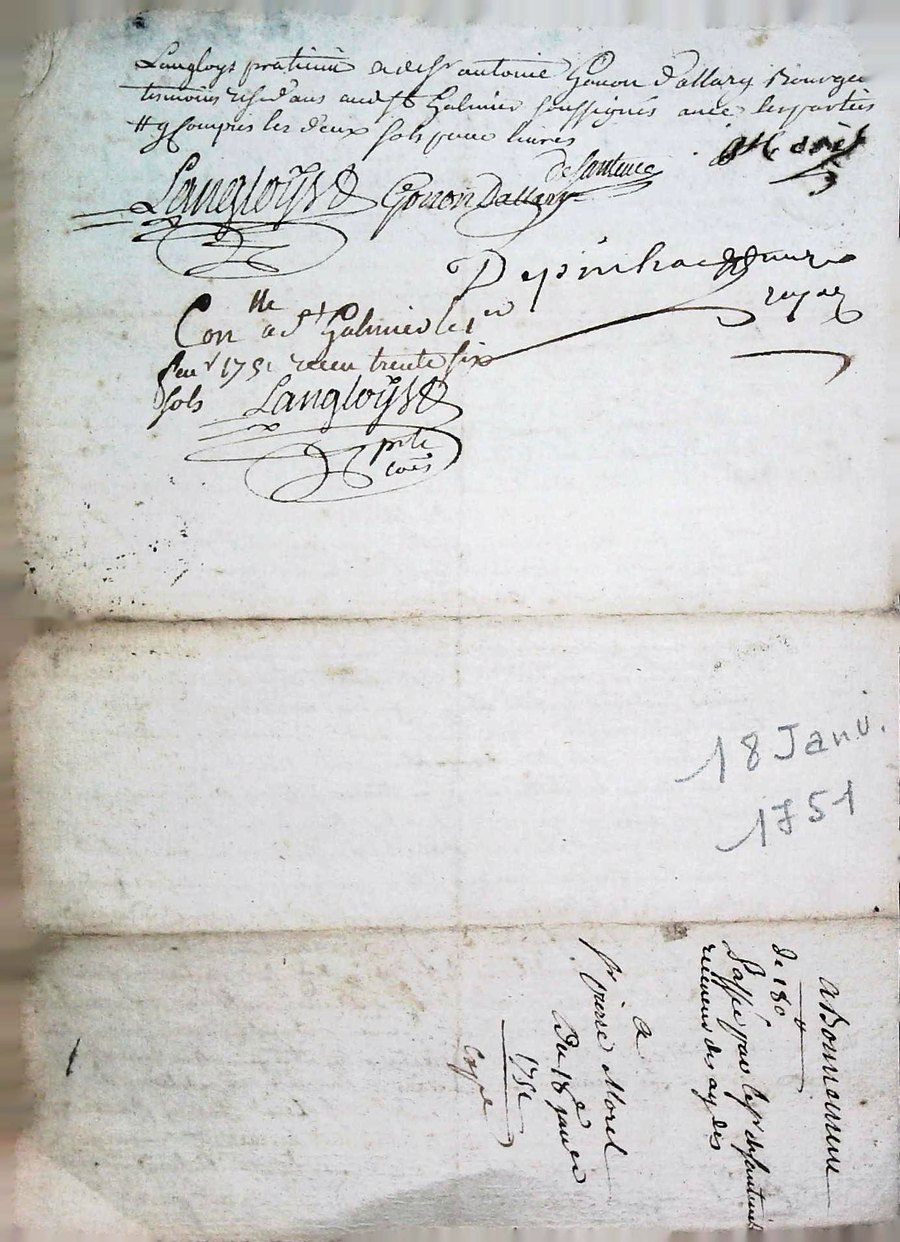 Langloys praticien et de Sr antoine Gonon d'allary Bourgeois
temoins residans audt St Galmier soussignés avec les parties
Compris les deux sols pour livres
de Santeuil
Langloys Gonon Dallary Morel
Depinhac
royal
Conlle a St Galmier le 1er
feuvr 1751 receu trente six
sols Langloys
pr le
coners
18 Janv.
1751
abonnement
de 180
Passé par le Sr desanteuil
receveur des aydes
a
Sr pierre Morel
Du 18e janvier
1751
Copie